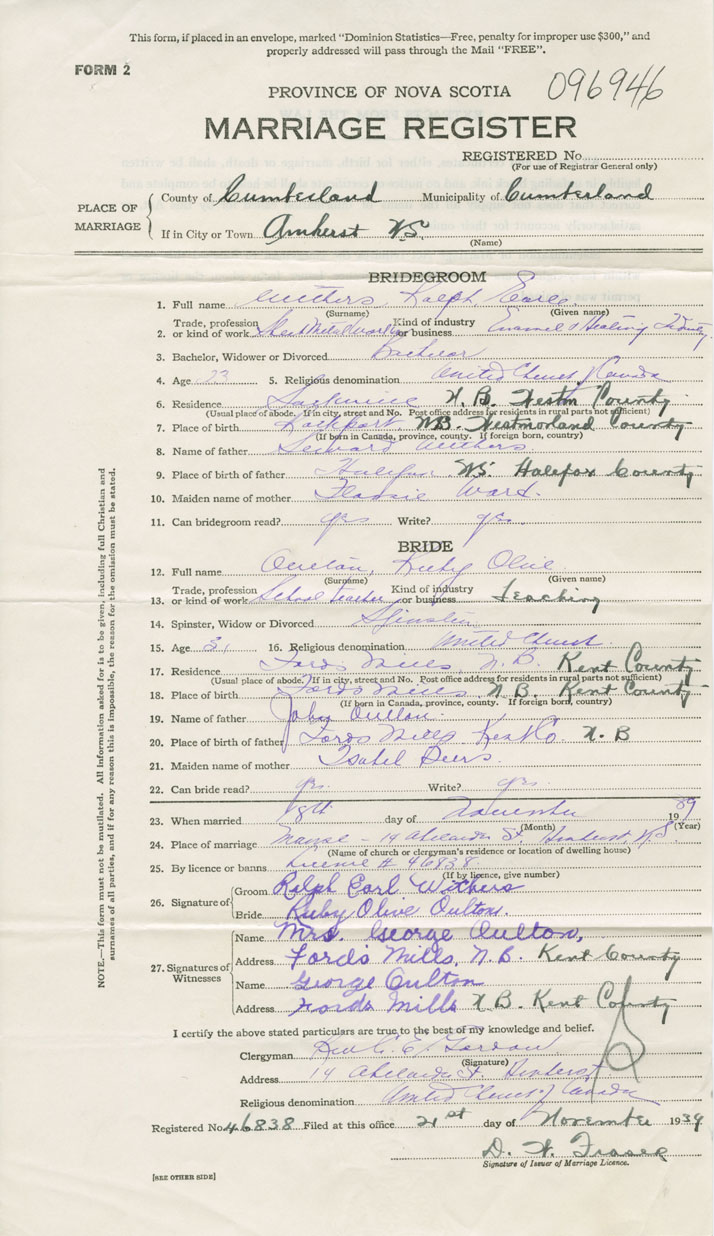 This form, if placed in an envelope, marked "Dominion Statistics—Free, penalty for improper use $300," and
properly addressed will pass through the Mail "FREE".
FORM 2
PROVINCE OF NOVA SCOTIA 096946
MARRIAGE REGISTER
REGISTERED No.
(For use of Registrar General only)
PLACE OF MARRIAGE
County of Cumberland Municipality of Cumberland
If in City or Town Amherst NS
(Name)
BRIDEGROOM
1. Full name Withers Ralph Earle
(Surname) (Given name)
Trade, profession Kind of industry
2. or kind of work Sheet Metal worker or business Enamel & Heating
3. Bachelor, Widower or Divorced Bachelor
4. Age 23 5. Religious denomination United Church of Canada
6. Residence Sackville N.B. Westm County
(Usual place of abode. If in city, street and No. Post office address for residents in rural parts not sufficient)
7. Place of birth Rockport NB. Westmorland County
(If born in Canada, province, county. If foreign born, country)
8. Name of father Withers
9. Place of birth of father Halifax NS. Halifax County
10. Maiden name of mother Flossie Ward.
11. Can bridegroom read? yes Write? yes
BRIDE
12. Full name Oulton, Ruby Olive
(Surname) (Given name)
Trade, profession Kind of industry
13. or kind of work School teacher or business Teaching
14. Spinster, Widow or Divorced Spinster
15. Age 31 16. Religious denomination United Church
17. Residence Fords Mills, N.B. Kent County
(Usual place of abode. If in city, street and No. Post office address for residents in rural parts not sufficient)
18. Place of birth Fords Mills N.B. Kent County
(If born in Canada, province, county. If foreign born, country)
19. Name of father John Oulton.
20. Place of birth of father Fords Mills Kent Co N.B
21. Maiden name of mother Isabel Beers.
22. Can bride read? yes. Write? yes.
23. When married 18th day of November 1939
(Month) (Year)
24. Place of marriage Manse - 14 Adelaide St. Amherst, N.S
(Name of church or clergyman's residence or location of dwelling house)
25. By licence or banns License # 46838.
(If by licence, give number)
26. Signature of
Groom Ralph Earl Withers
Bride Ruby Olive Oulton.
27. Signatures of Witnesses
Name Mrs. George Oulton,
Address Fords Mills, N.B. Kent County
Name George Oulton
Address Fords Mills N.B. Kent County
I certify the above stated particulars are true to the best of my knowledge and belief.
Clergyman Rev C. E. Gordon
(Signature)
Address 14 Adelaide St. Amherst
Religious denomination United Church of Canada
Registered No. 46838 Filed at this office 21st day of November 1939
D. W. Fraser
Signature of Issuer of Marriage Licence.
[SEE OTHER SIDE]
NOTE.—This form must not be mutilated. All information asked for is to be given, including full Christian and
surnames of all parties, and if for any reason this is impossible, the reason for the omission must be stated.